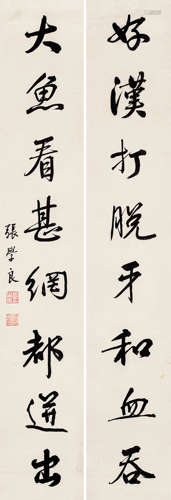 好漢打脫牙和血吞
大魚看甚網都迸出
張學良